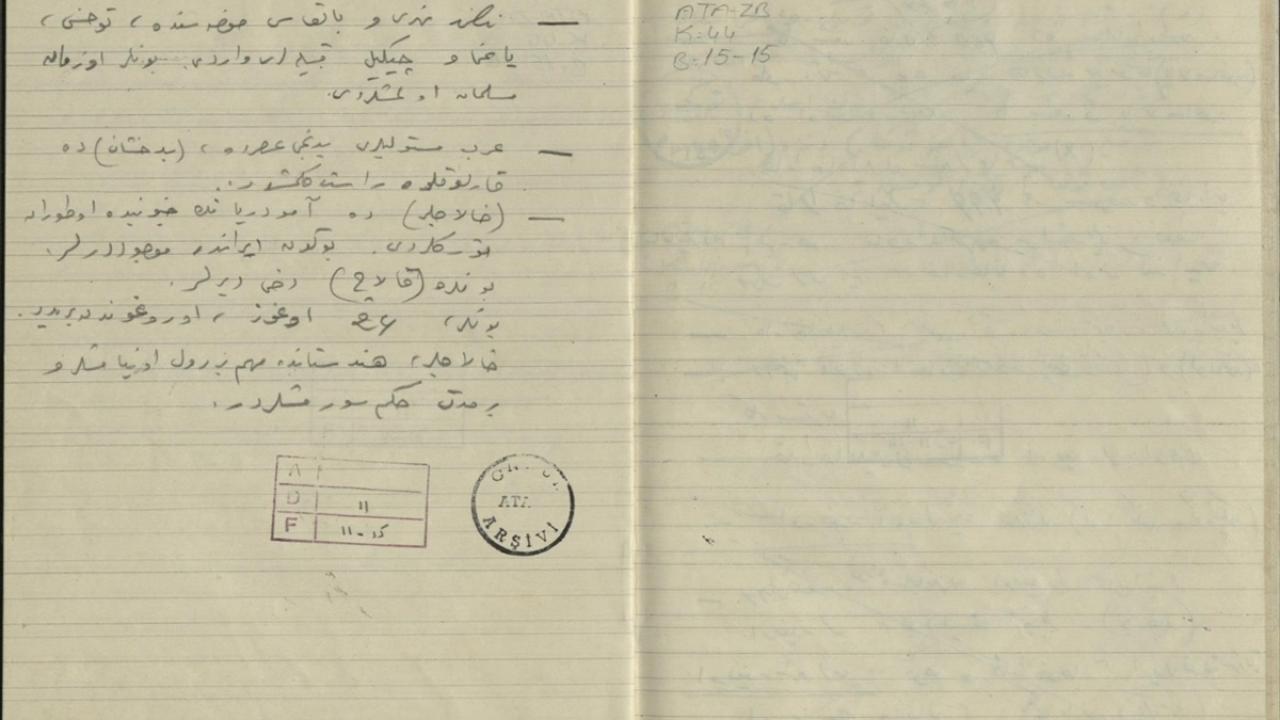 — نهری و بالقاش حوضه سنده ، توخسی ،
یاغما و چیکیل قبیله لری واردی. بونلر اوزمان
مسلمان اولمشلردی.
— عرب مستولیلری یدنجی عصرده ، (بدخشان) ده
قارلوقلره راست کلمشلردر.
— (خالاجلر) ده آمودریا نك جنوبنده اوطوران
تورکلردی. بوکون ایرانده موجوددرلر.
بونلره (قالاچ) دخی دیرلر.
بونلر، ۲۴ اوغوز ، اوروغوندن بریدر.
خالاجلر، هندستانده مهم بر رول اوینامشلر و
بر مدت حکم سورمشلردر.
A
D ۱۱
F ۱۱-۱۵
ATA
ARŞİVİ
ATA-ZB
K:44
B:15-15